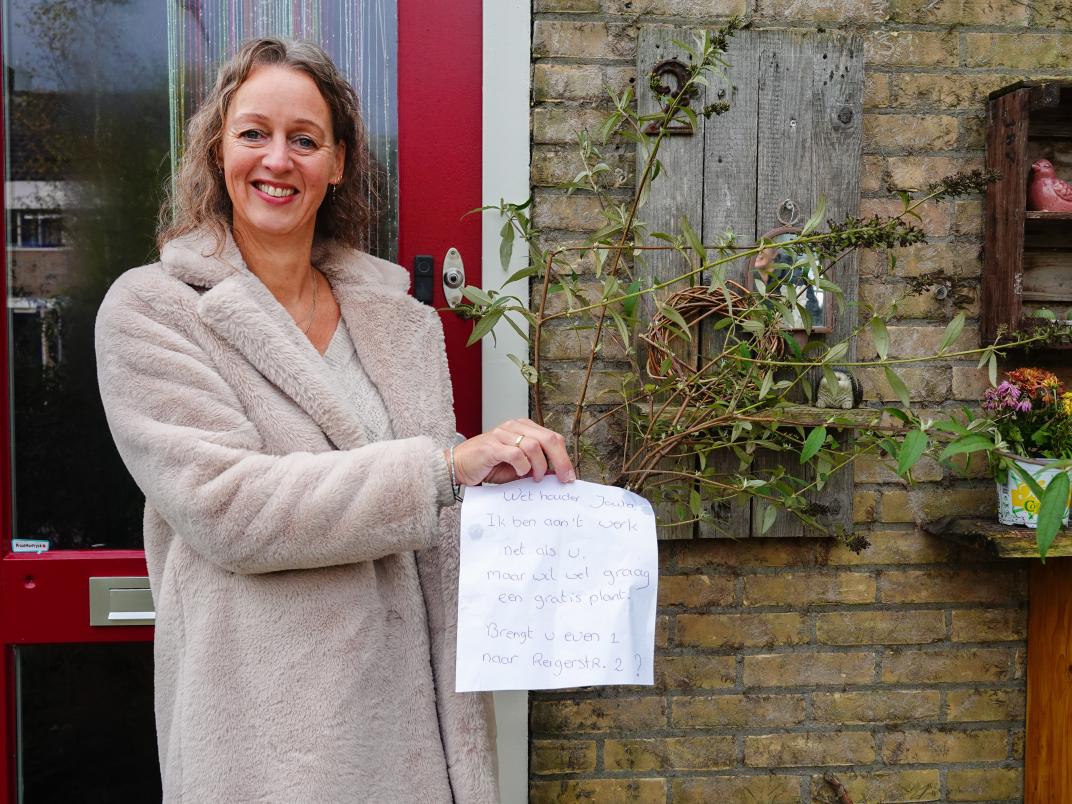 2
Wethouder Joula,
Ik ben aan't werk
net als u.
maar wil wel graag
een gratis plant.
Brengt u even 1
naar Reigerstr. 2 ?